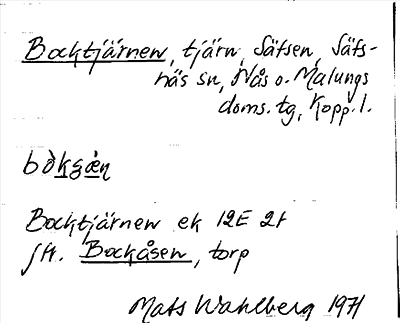 Bocktjärnen, tjärn, Säfsen, Säfs-
näs sn, Nås o. Malungs
doms. tg, Kopp. l.
Bocktjärnen ek 12E 2f
jfr. Bockåsen, torp
Mats Wahlberg 1971